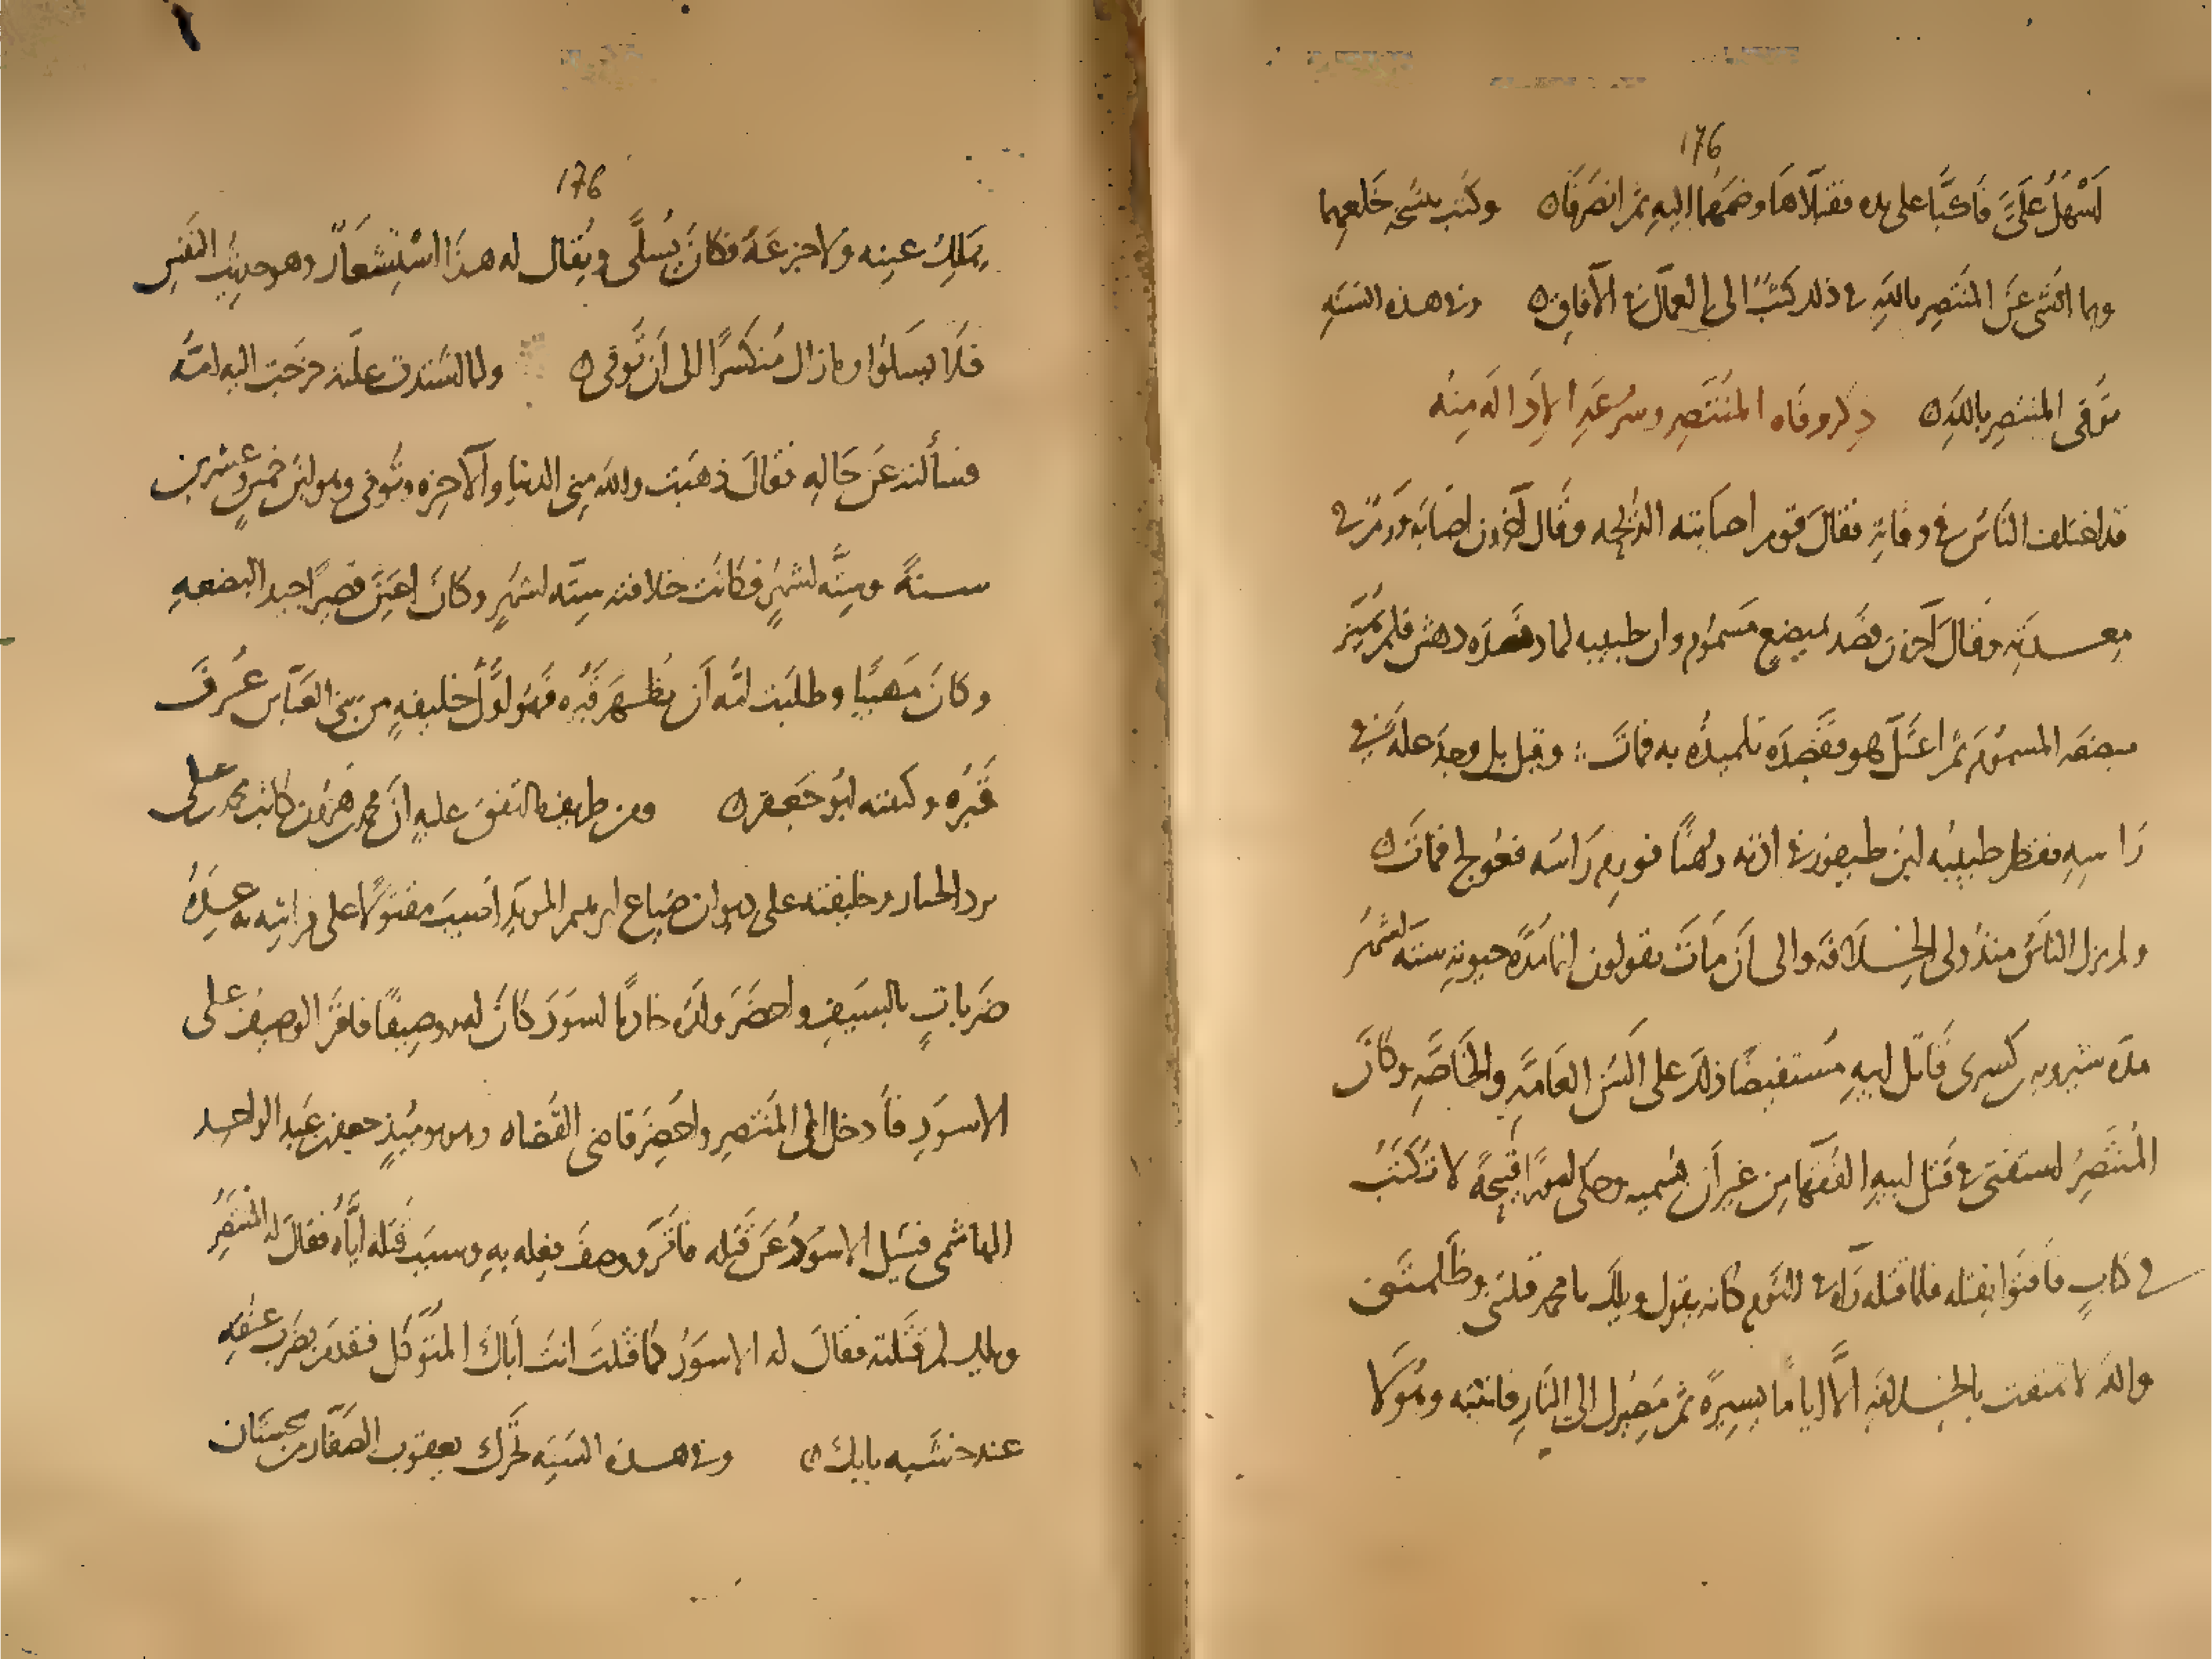 176
اَسْهَلُ عَلَيَّ فَاكبَّا على يده فقبّلاها وضمَّهما اليه ثم انصرفا ه وكتب بنسخه خَلعهما
وبما انشى عن المنتصر بالله فى ذلك كتبًا الى العمال فى الآفاق ه وفى هذه السَنَهِ
توفى المنتصر بالله ه ذكر وفاه المنتصر وسر غدر الاد اله منه
قد اختلف النّاس فى وفاتهِ فقالَ قوم اصابته الذبحه وقال آخرون اصَابَه ورمٌ فى
معدتهِ وقالَ آخرون فصد بمبضعٍ مَسموُم وان طبيبه لما فصده دهش فلم يميّز
مبضعه المسموُم ثم اعتلّ هو ففَصَده تلميذُه به فماتَ وقيل بل وجد علةً فى
رَاسِهِ فقطر طبيبُه ابن طيفور فى اذنه دهنًا فورِم رَاسَه فعُوجل فماتَ ه
ولم يزل الناسُ منذ ولى الخلافَه والى اَن مَاتَ يقولون انما مُدّه حيوته ستّه اشهُر
مدّه شيرويه بن كسرى قَاتل ابيهِ مُستفيضًا ذلك على اَلسُن العَامّهِ والخاصّهِ وكانَ
المُنتَصِرُ استفتى فى قَتل ابيهِ الفُقهَا مِن غير اَن يُسميه وحكى امورًا قبيحَةً لا تُكتَبُ
فى كتابٍ فافتوا بقتله فلما قتله رَآه فى النَوم كانه يقول ويلكَ يا محمد قتلتنى وظَلمتَنى
والله لا تمتعت بالخلافهِ الَّا اياما يسيرةً ثم مَصِيرُك الى النارِ فانتبه وهُو لا
176
يَملِكُ عينه ولا جزعَهُ فكانَ يُسلَّى ويُقال له هذا اسْتِشعارٌ وهو حديث النَفسِ
فلا يَسلوا وما زال مُنكسرًا الى اَن تُوفى ه ولما اشتدت علّته خرجَت اليه امّهُ
فسأَلته عَن حَالِهِ فقالَ ذهَبَت والله مِنى الدنيا والآخره وتُوفى وهو ابن خمسٍ وعشرين
سنةً وستَّه اشهُرٍ فكانت خلافته ستّه اشهُرٍ وكانَ اعيَنَ قصيرًا جيد البضعهِ
وكانَ مَهيبًا وطلبَت امّه اَن يُظهَرَ قَبره فهُو اوّلُ خليفهٍ من بنى العبّاس عُرفَ
قَبرُه وكنيته ابُو جَعفر ه ومن طريف ما اتفق عليهِ اَنّ محمد بن هرون كاتب محمد بن على
برد الخيار وخليفته على ديوان ضِياع ابرهيم المويّدِ اُصيبَ مقتولًا على فراشِه به عِدّهُ
ضَرباتٍ بالسَيفِ واحضَرَ ولَده خادمًا اسوَدَ كانَ له ووصيفًا فاقرَّ الوصيفُ على
الاسوَدِ فاُدخل الى المنتصِر واُحضِرَ قاضى القُضاه وهو يوميذٍ جعفر بن عَبد الواحد
الهاشمى فسُيل الاسوَدُ عَن قَتله فاقَرّ ووصفَ فِعله بهِ وسبَبَ قَتله ايّاهُ فقالَ لهُ المنتصرُ
ويلك لم قتَلته فقالَ له الاسوَدُ لما قتلتَ انتَ اَباكَ المتوَكل فتقدمَ بضَرب عنقه
عند خشبه بابك ه وفى هذه السَنَه تحَرّك يعقوب الصفّار من سجستان